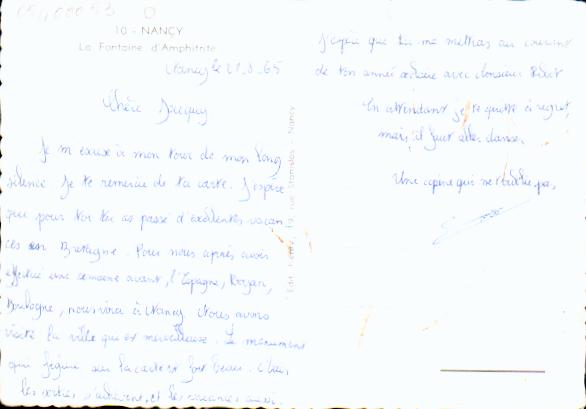 10 - NANCY
La Fontaine d'Amphitrite
Nancy le 21.8.65
Chère Jacquy
Je m'excuse à mon tour de mon long
silence Je te remercie de ta carte. J'espère
que pour toi tu as passé d'excellentes vacan
ces en Bretagne. Pour nous après avoir
effectué une semaine avant, l'Espagne, Royan,
Boulogne, nous voici à Nancy Nous avons
visité la ville qui est merveilleuse. Le monument
qui figure sur la carte est fort beau.
les sorties s'achèvent, et les vacances aussi.
Edit. rue Stanislas - Nancy
J'espère que tu me mettras au courant
de ton année scolaire avec Monsieur
En attendant je te quitte à regret,
mais il faut aller danser
Une copine qui ne t'oublie pas,